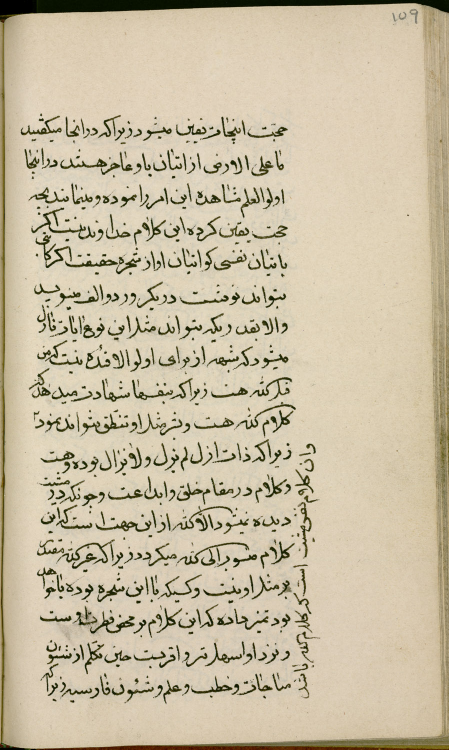 ۱۵۹
حجت اینجا درنفیس میشود زیرا که در اینجا میگفتید
ما علی الارض از اتیان باو عاجز هستند در اینجا
اولوالعلم مشاهده این امر را نموده و مینمایند بچه
حجت یقین کرده این کلام خداوند نیست اگر
باتیان نفسی کو اتیان او از شجره حقیقت اگر کاتبی
بتواند نوشت در یک روز دو الف مینویسد
والا بقدریکه بتواند مثل این نوع ایات نازل
میشود که شبهه از برای اولوالافئده نیست که من
قبل الله هست زیرا که بنفسها شهادت میدهد که
کلام الله هست و بشر مثل او تنطق نتواند نمود
زیرا که ذات ازل لم یزل و لایزال بوده و هست
و کلام در مقام خلق و ابداعست و چونکه در مشیت
دیده نمیشود الا الله از این جهت است که این
کلام منسوب الی الله میگردد زیرا که غیر الله مقتدر
بر مثل او نیست و کسیکه با این شجره بوده یا خواهد
بود تمیز داده که این کلام بر محض فطرت اوست
و نزد او اسهلتر و اقربست حین تکلم از شئون
مناجات و خطب و علم و شئون فارسیه زیرا که
وان کلام نفس مشیت است که کلام الله باشد